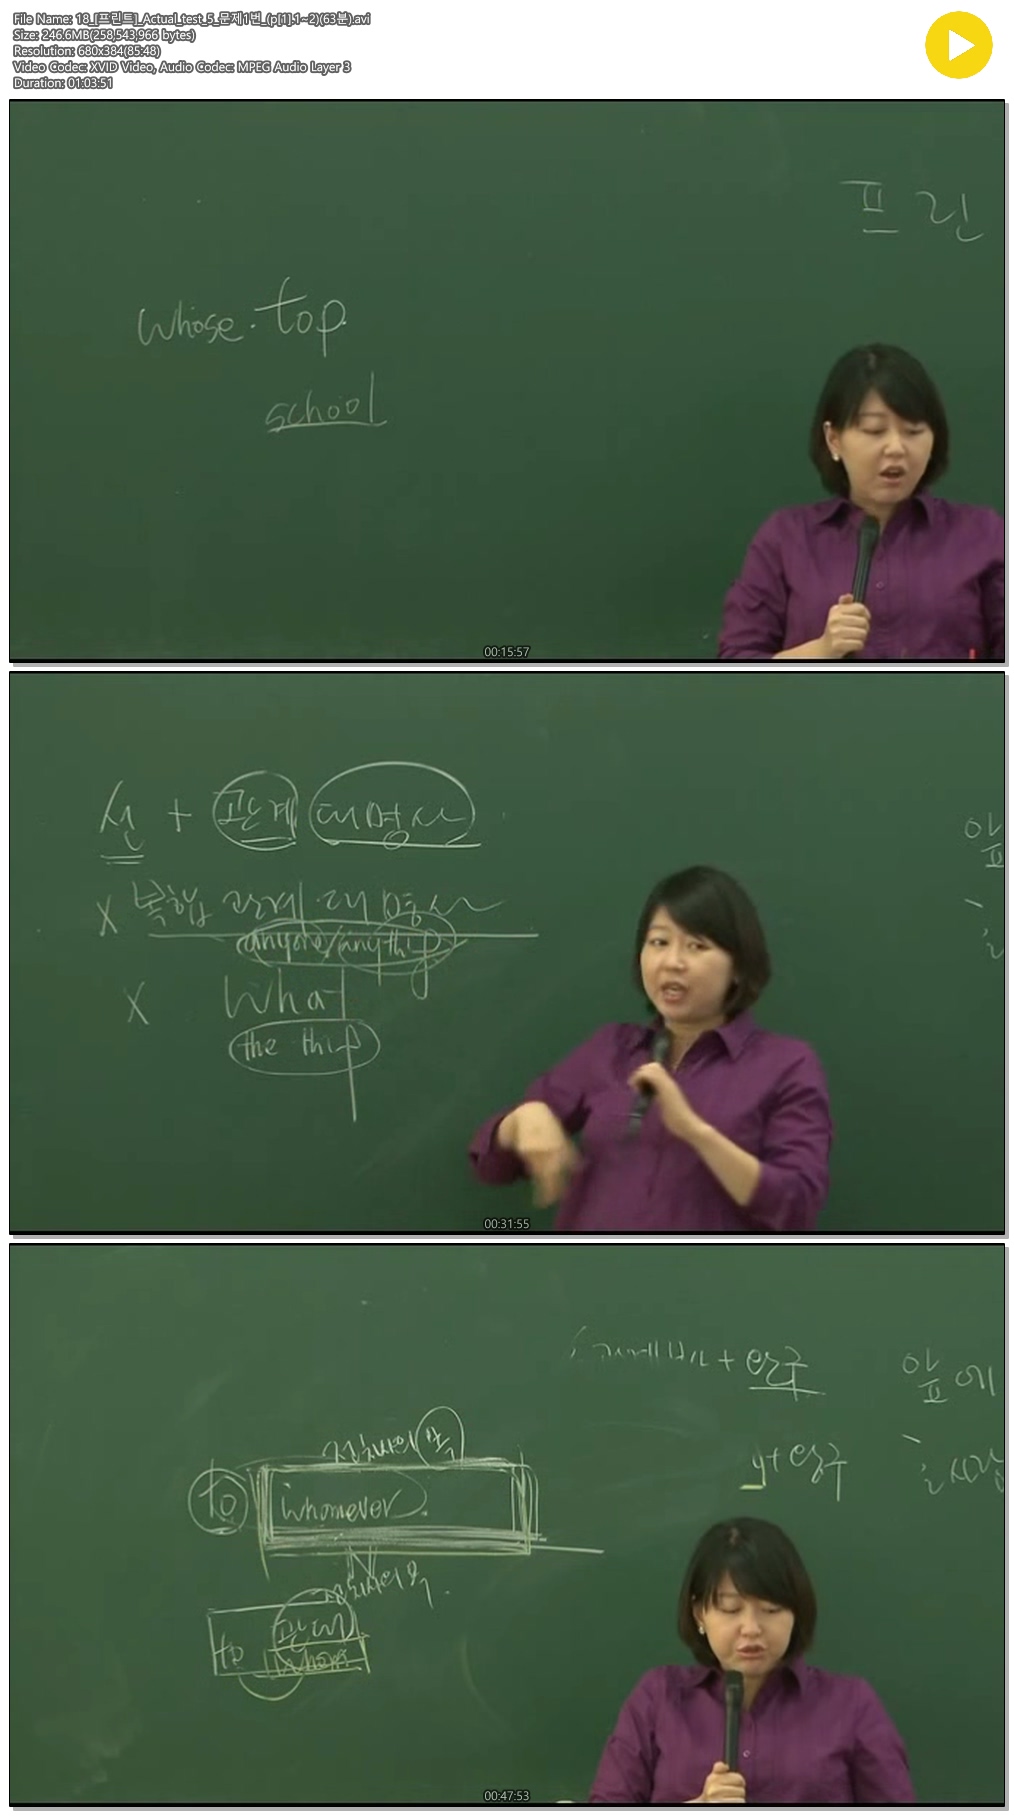 File Name: 18_[프린트]_Actual_test_5_문제1번_(p[1].1~2)(63분).avi
Size: 246.6MB(258,543,966 bytes)
Resolution: 680x384(85:48)
Video Codec: XVID Video, Audio Codec: MPEG Audio Layer 3
Duration: 01:03:51
프린
whose. top
school
00:15:57
선 + 관계 대명사
앞
X 복합 관계대명사
anyone/anything
X What
the thing
00:31:55
+ 완구
앞에
전치사의 목
y+ 완구
to whomever
전치사의 목
관대
to whom
00:47:53